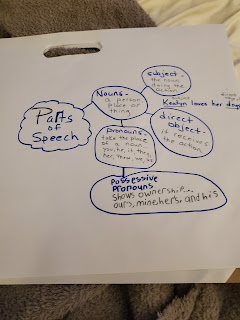 Parts
of
Speech
Nouns-
a person
place or
thing
subject-
the noun
doing the
action
Keatyn loves her dogs
direct
object-
it receives
the action
pronouns-
take the place
of a noun...
you, he, it, they,
her, them, we, us
Possessive
Pronouns
shows ownership...
ours, mine, hers, and his